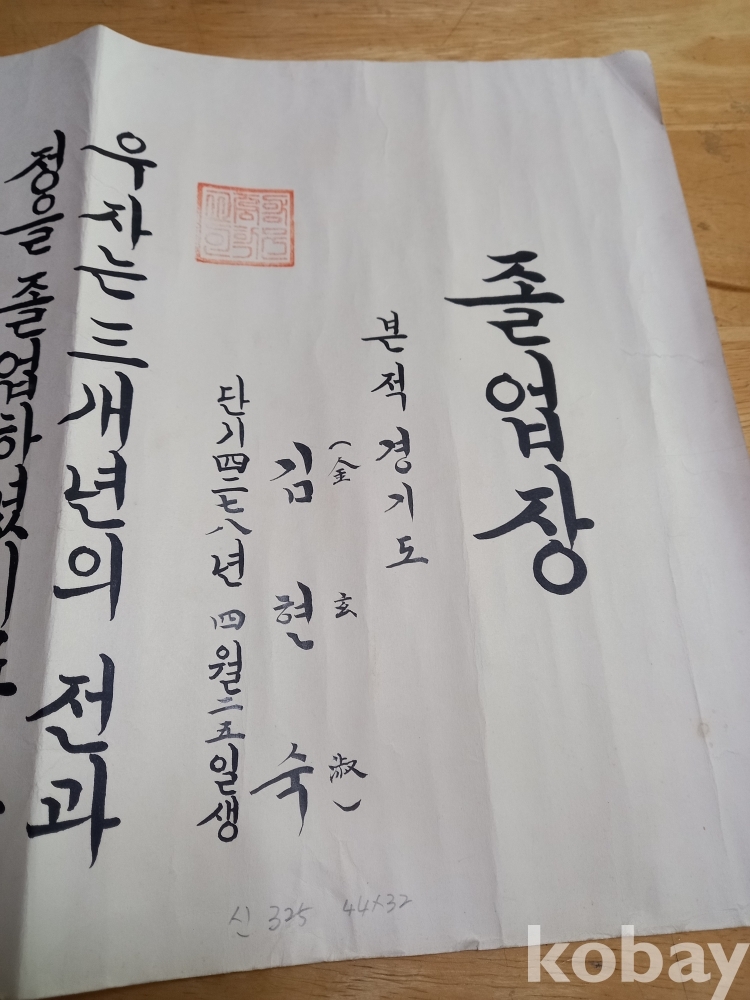 졸업장
본적 경기도
(金玄淑)
김현숙
단기四二七八년 四월二五일생
우자는 三개년의 전과
정을 졸업하였기로
신 325 44×32
kobay